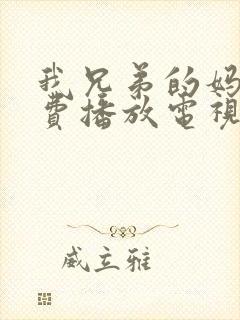 我兄弟的妈
费播放電視
威立雅